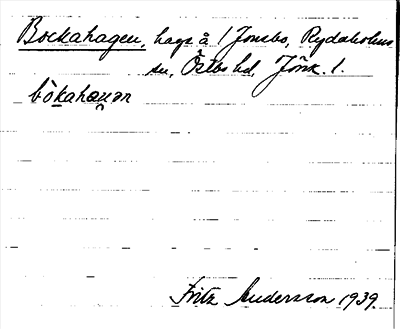 Bockahagen, hage å 1 Jonsbo, Rydaholms
sn, Östbo hd, Jönk. l.
bòkahaꭒən
Fritz Andersson 1939.